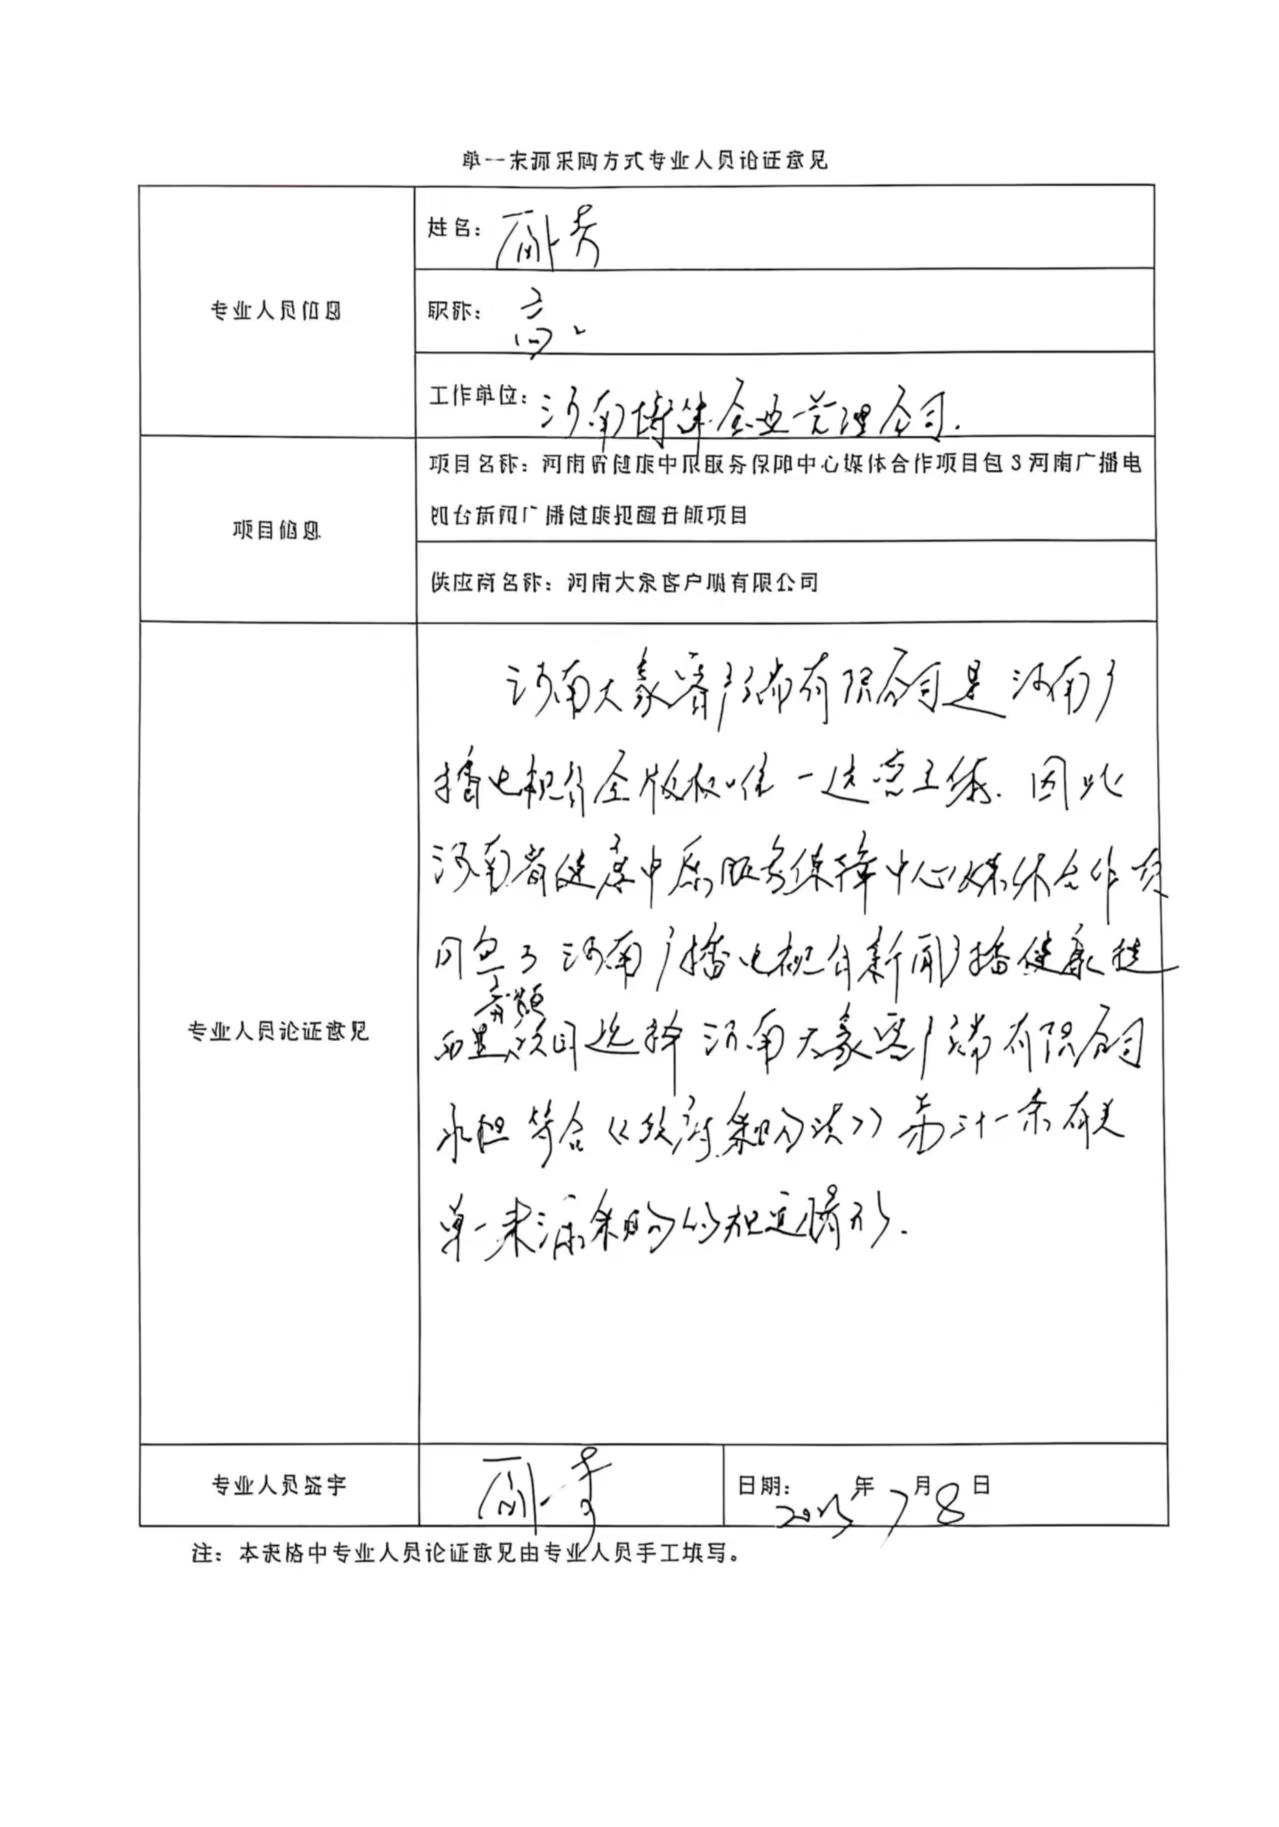 单一来源采购方式专业人员论证意见
专业人员信息
姓名：
职称：高
工作单位：河南博洋企业管理公司.
项目信息
项目名称：河南省健康中原服务保障中心媒体合作项目包3河南广播电
视台新闻广播健康提醒音频项目
供应商名称：河南大象客户端有限公司
专业人员论证意见
河南大象客户端有限公司是河南广
播电视台全版权唯一运营主体. 因此
河南省健康中原服务保障中心媒体合作项
目包3河南广播电视台新闻广播健康提
醒音频项目选择河南大象客户端有限公司
承担符合《政府采购法》第三十一条有关
单一来源采购的规定情形.
专业人员签字
日期：2025年7月8日
注：本表格中专业人员论证意见由专业人员手工填写。